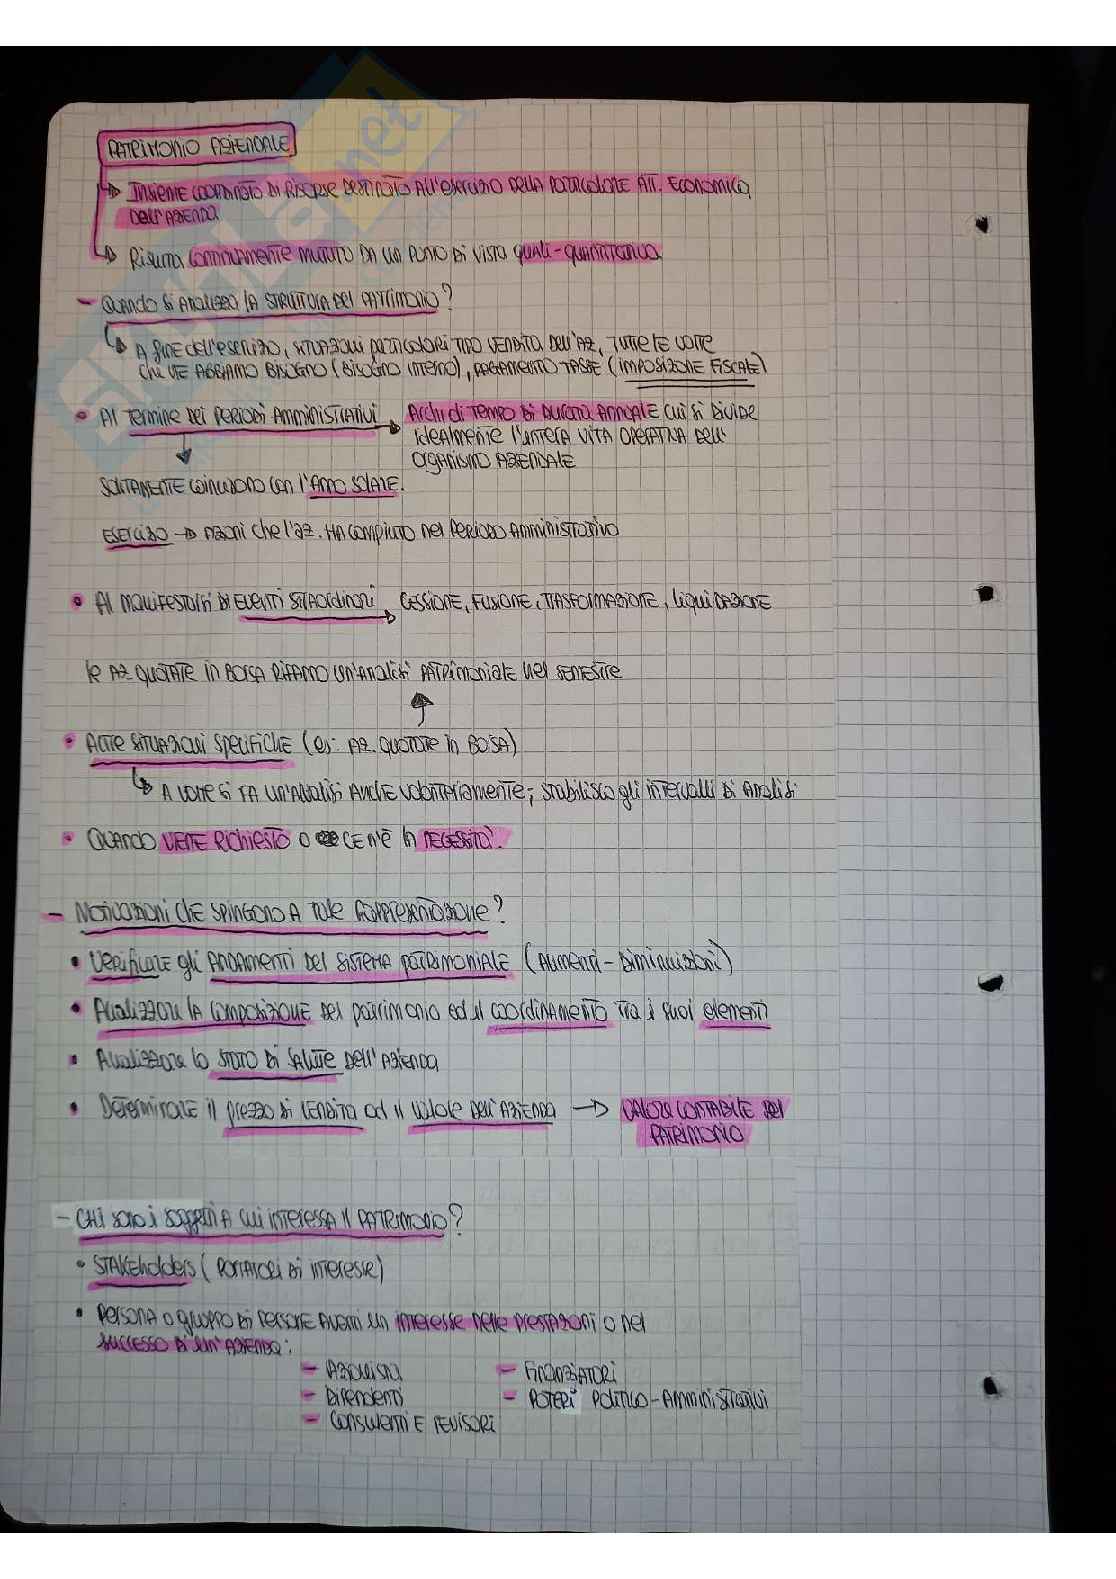 PATRIMONIO AZIENDALE
→ Insieme coordinato di risorse destinato all'esercizio della particolare att. economica
dell'azienda
→ Risulta continuamente mutato da un punto di vista quali-quantitativo
- Quando si analizza la struttura del patrimonio?
↳ A fine dell'esercizio, situazioni particolari tipo vendita dell'az, tutte le volte
che ne abbiamo bisogno (bisogno interno), pagamento tasse (imposizione fiscale)
• Al termine dei periodi amministrativi → Archi di tempo di durata annuale cui si divide
idealmente l'intera vita operativa dell'
organismo aziendale
↓
solitamente coincidono con l'anno solare.
Esercizio → azioni che l'az. ha compiuto nel periodo amministrativo
• Al manifestarsi di eventi straordinari → cessione, fusione, trasformazione, liquidazione
le az quotate in borsa rifanno un'analisi patrimoniale nel semestre
↑
• Altre situazioni specifiche (es: az. quotate in borsa)
↳ A volte si fa un'analisi anche volontariamente; stabilisco gli intervalli di analisi
• Quando viene richiesto o ce n'è la necessità.
- Motivazioni che spingono a tale rappresentazione?
• Verificare gli andamenti del sistema patrimoniale (aumenti - diminuzioni)
• Analizzare la composizione del patrimonio ed il coordinamento tra i suoi elementi
• Analizzare lo stato di salute dell'azienda
• Determinare il prezzo di vendita ed il valore dell'azienda → valore contabile del
patrimonio
- Chi sono i soggetti a cui interessa il patrimonio?
• Stakeholders (portatori di interesse)
• Persona o gruppo di persone aventi un interesse nelle prestazioni o nel
successo di un'azienda:
- Azionisti - Finanziatori
- Dipendenti - Poteri politico-amministrativi
- Consulenti e revisori